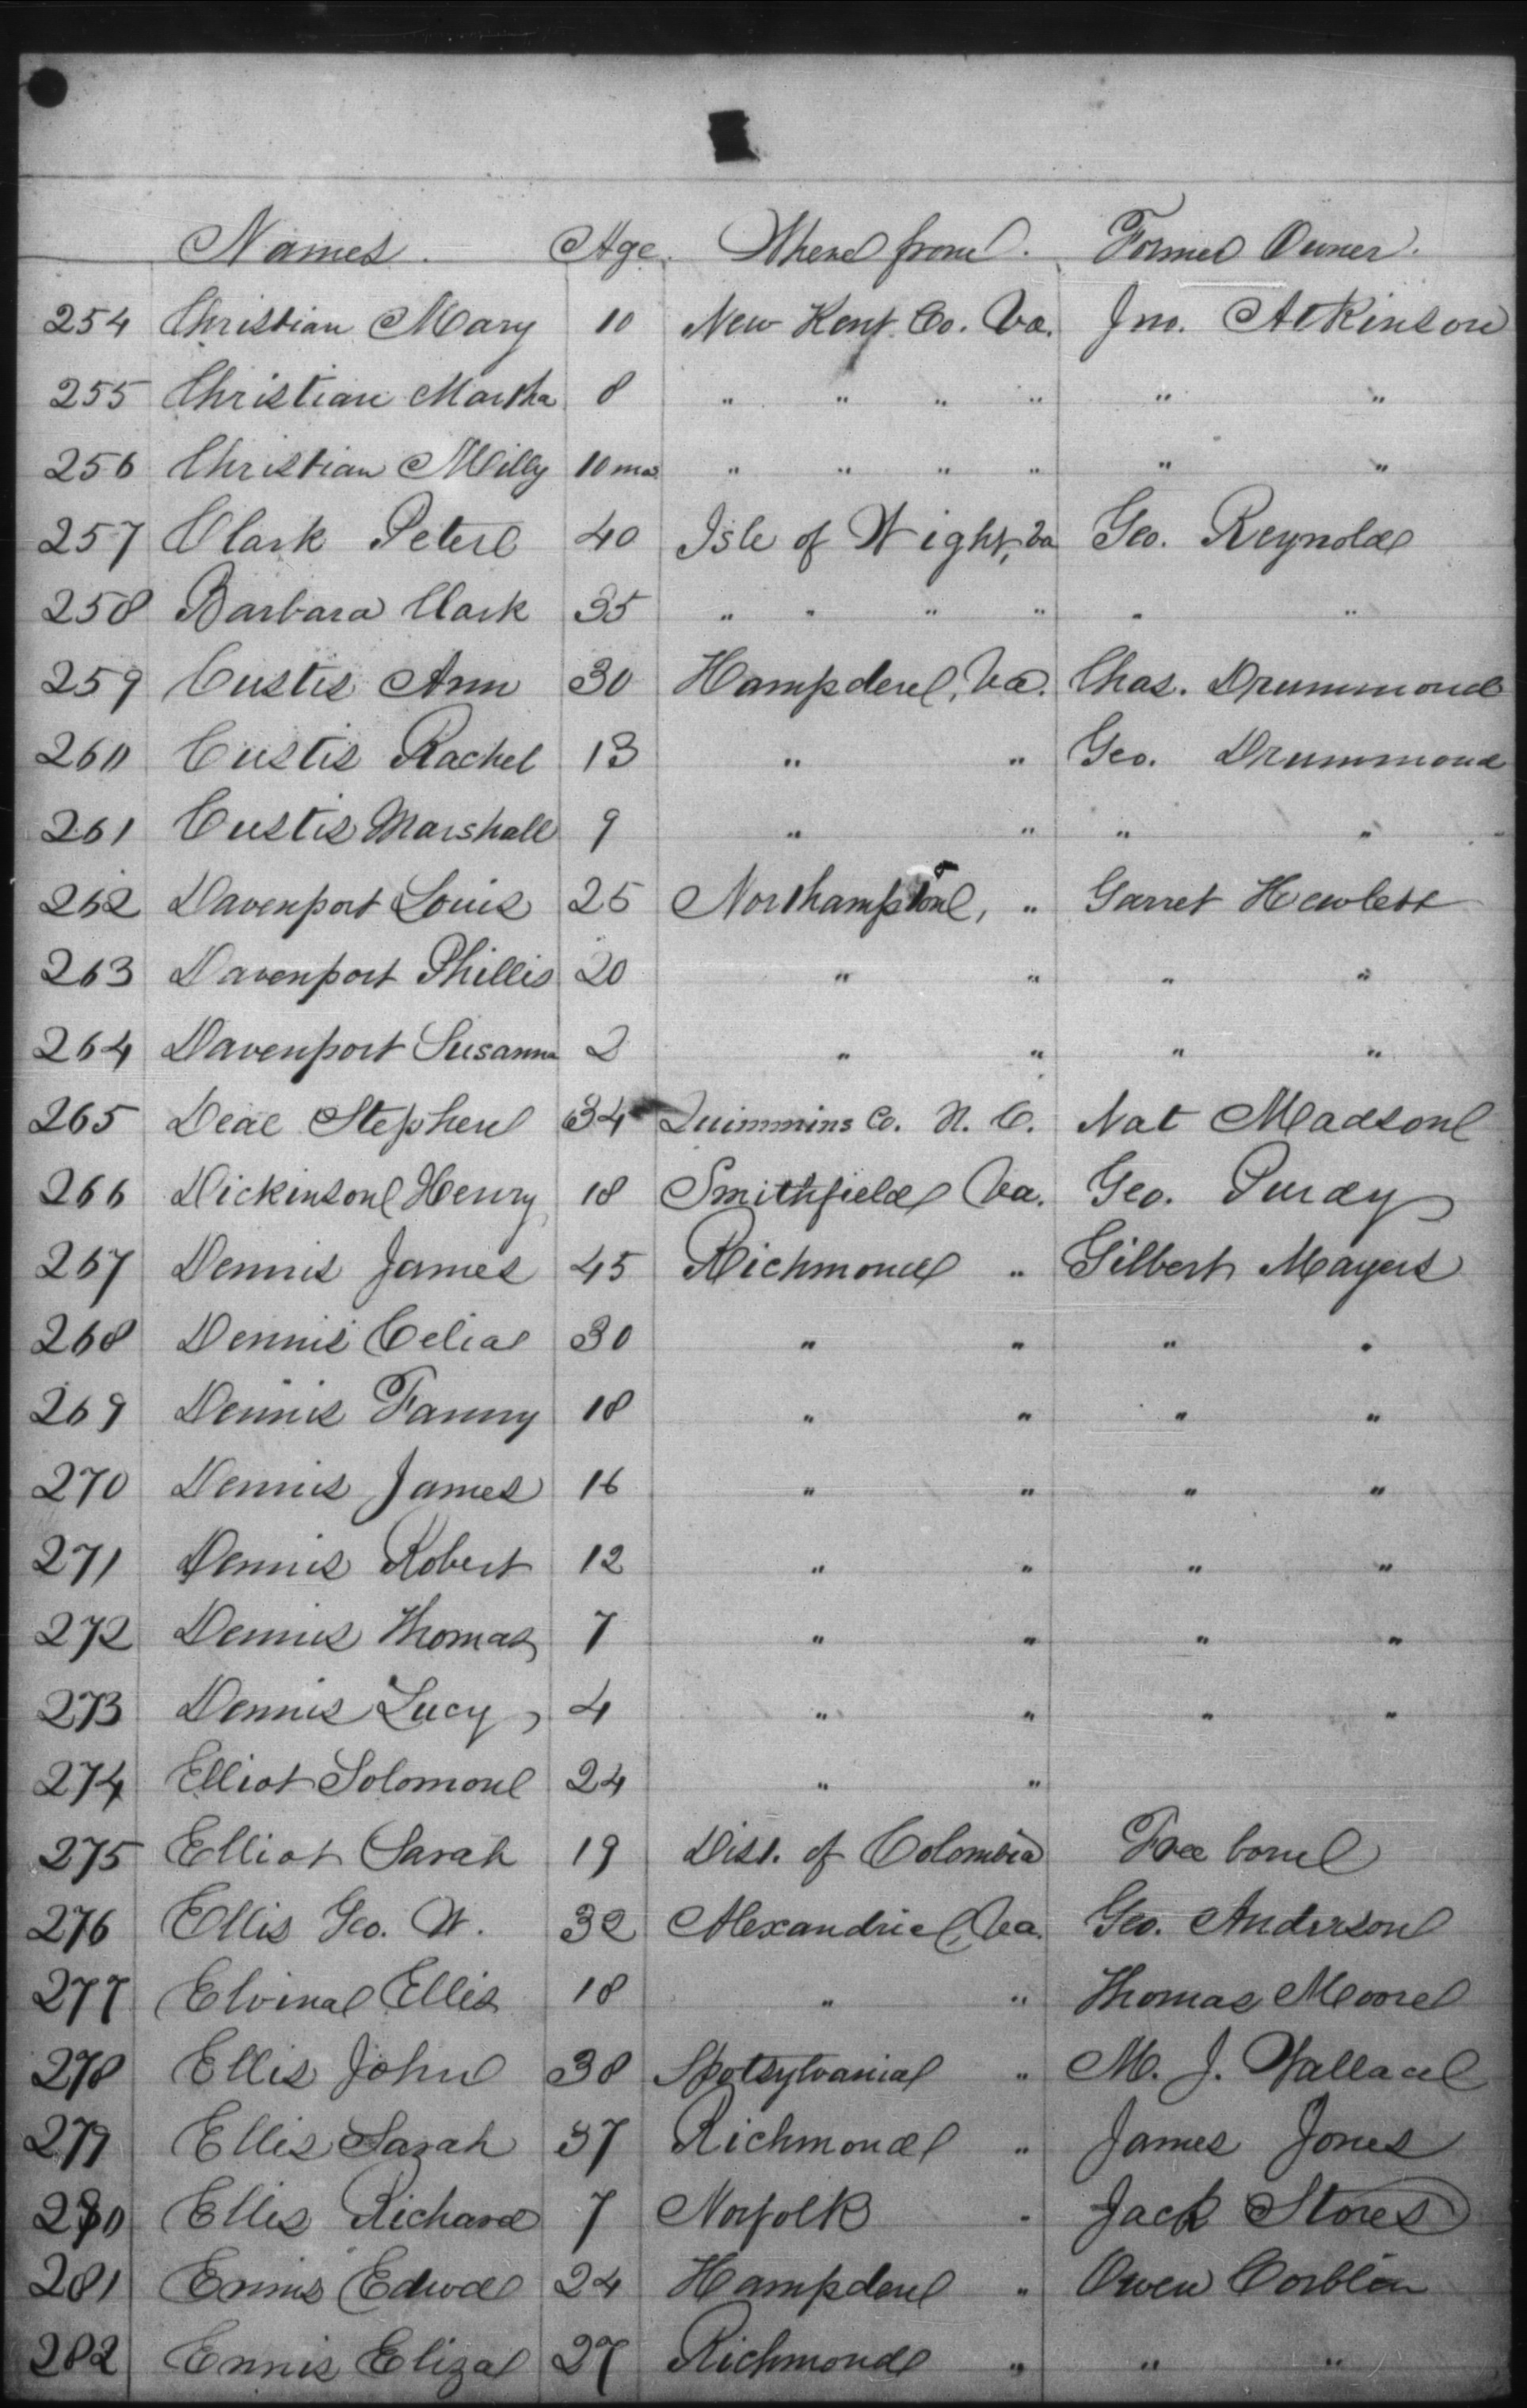 Names. Age. Where from. Former Owner.
254 Christian Mary 10 New Kent Co. Va. Jno. Atkinson
255 Christian Martha 8 " " " " " "
256 Christian Milly 10 mos " " " " " "
257 Clark Peter 40 Isle of Wight, Va Geo. Reynold
258 Barbara Clark 35 " " " " " "
259 Custis Ann 30 Hampden, Va. Chas. Drummond
260 Custis Rachel 13 " " Geo. Drummond
261 Custis Marshall 9 " " " "
262 Davenport Louis 25 Northampton, " Garret Hewlett
263 Davenport Phillis 20 " " " "
264 Davenport Susanna 2 " " " "
265 Deal Stephen 34 Quimmins Co. N. C. Nat Madson
266 Dickinson Henry 18 Smithfield Va. Geo. Purdy
267 Dennis James 45 Richmond " Gilbert Mayers
268 Dennis Celia 30 " " " "
269 Dennis Fanny 18 " " " "
270 Dennis James 16 " " " "
271 Dennis Robert 12 " " " "
272 Dennis Thomas 7 " " " "
273 Dennis Lucy 4 " " " "
274 Elliot Solomon 24 " "
275 Elliot Sarah 19 Dist. of Colombia Free born
276 Ellis Geo. W. 32 Alexandria, Va. Geo. Anderson
277 Elvina Ellis 18 " " Thomas Moore
278 Ellis John 38 Spotsylvania " M. J. Wallace
279 Ellis Sarah 37 Richmond " James Jones
280 Ellis Richard 7 Norfolk " Jack Stores
281 Ennis Edwd 24 Hampden " Owen
282 Ennis Eliza 27 Richmond " " "